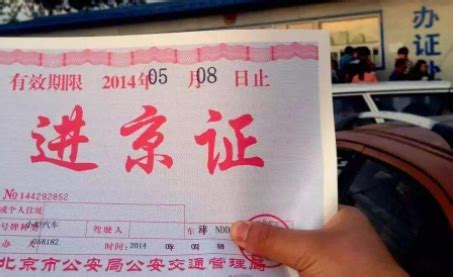 办证
有效期限 2014年05月08日止
进京证
№144292852
或个人住址
号牌种类 汽车 驾驶人 车 津 NDD
时间:2014
北京市公安局公安交通管理局